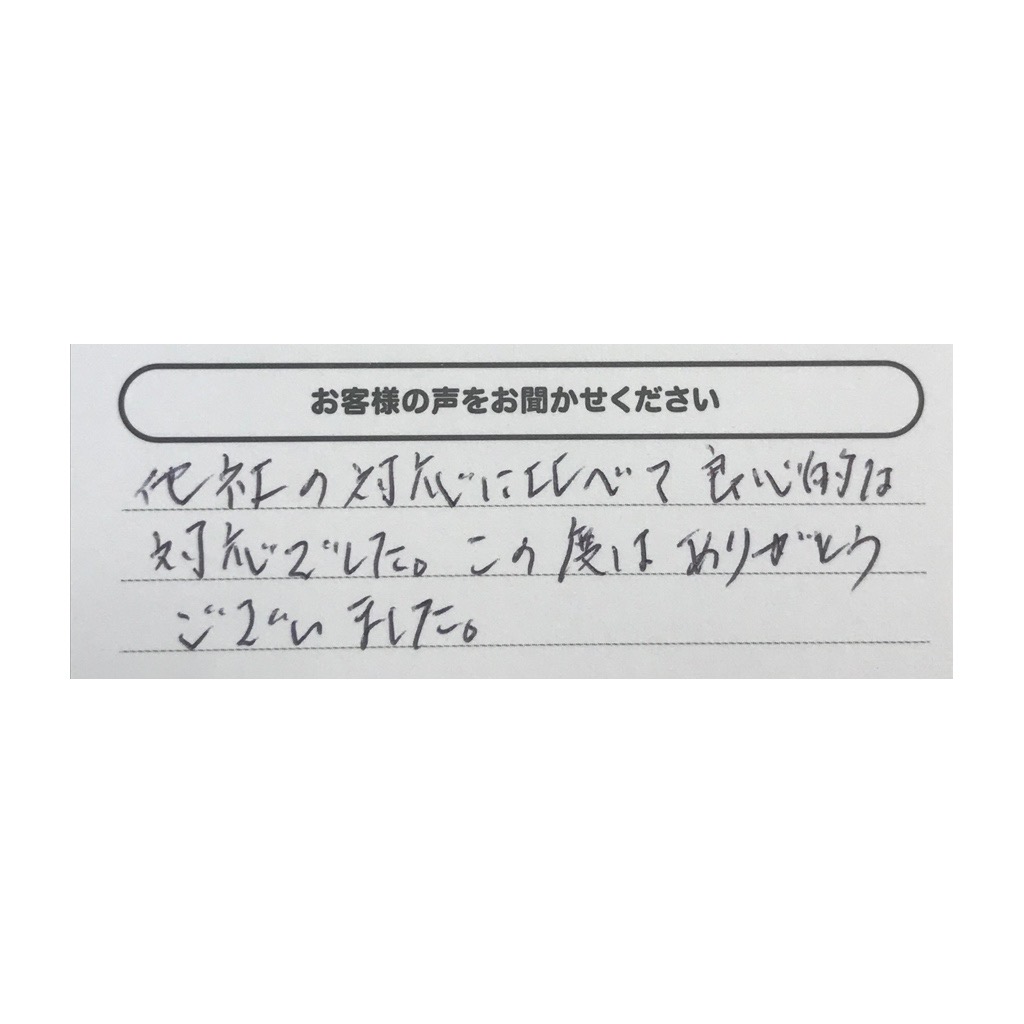 お客様の声をお聞かせください
他社の対応に比べて良心的は
対応でした。この度はありがとう
ございました。